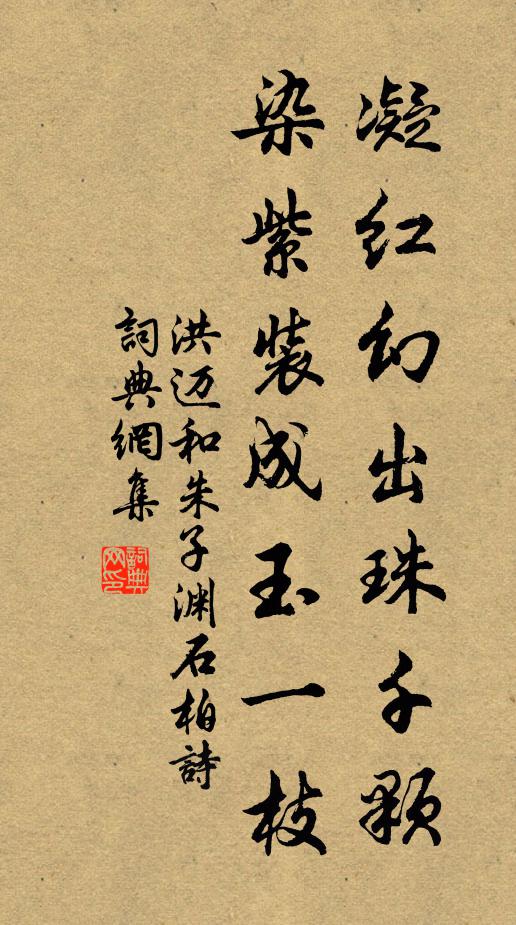 凝红幻出珠千颗
染紫装成玉一枝
洪迈和朱子渊石柏詩
詞典網集
詞典网印